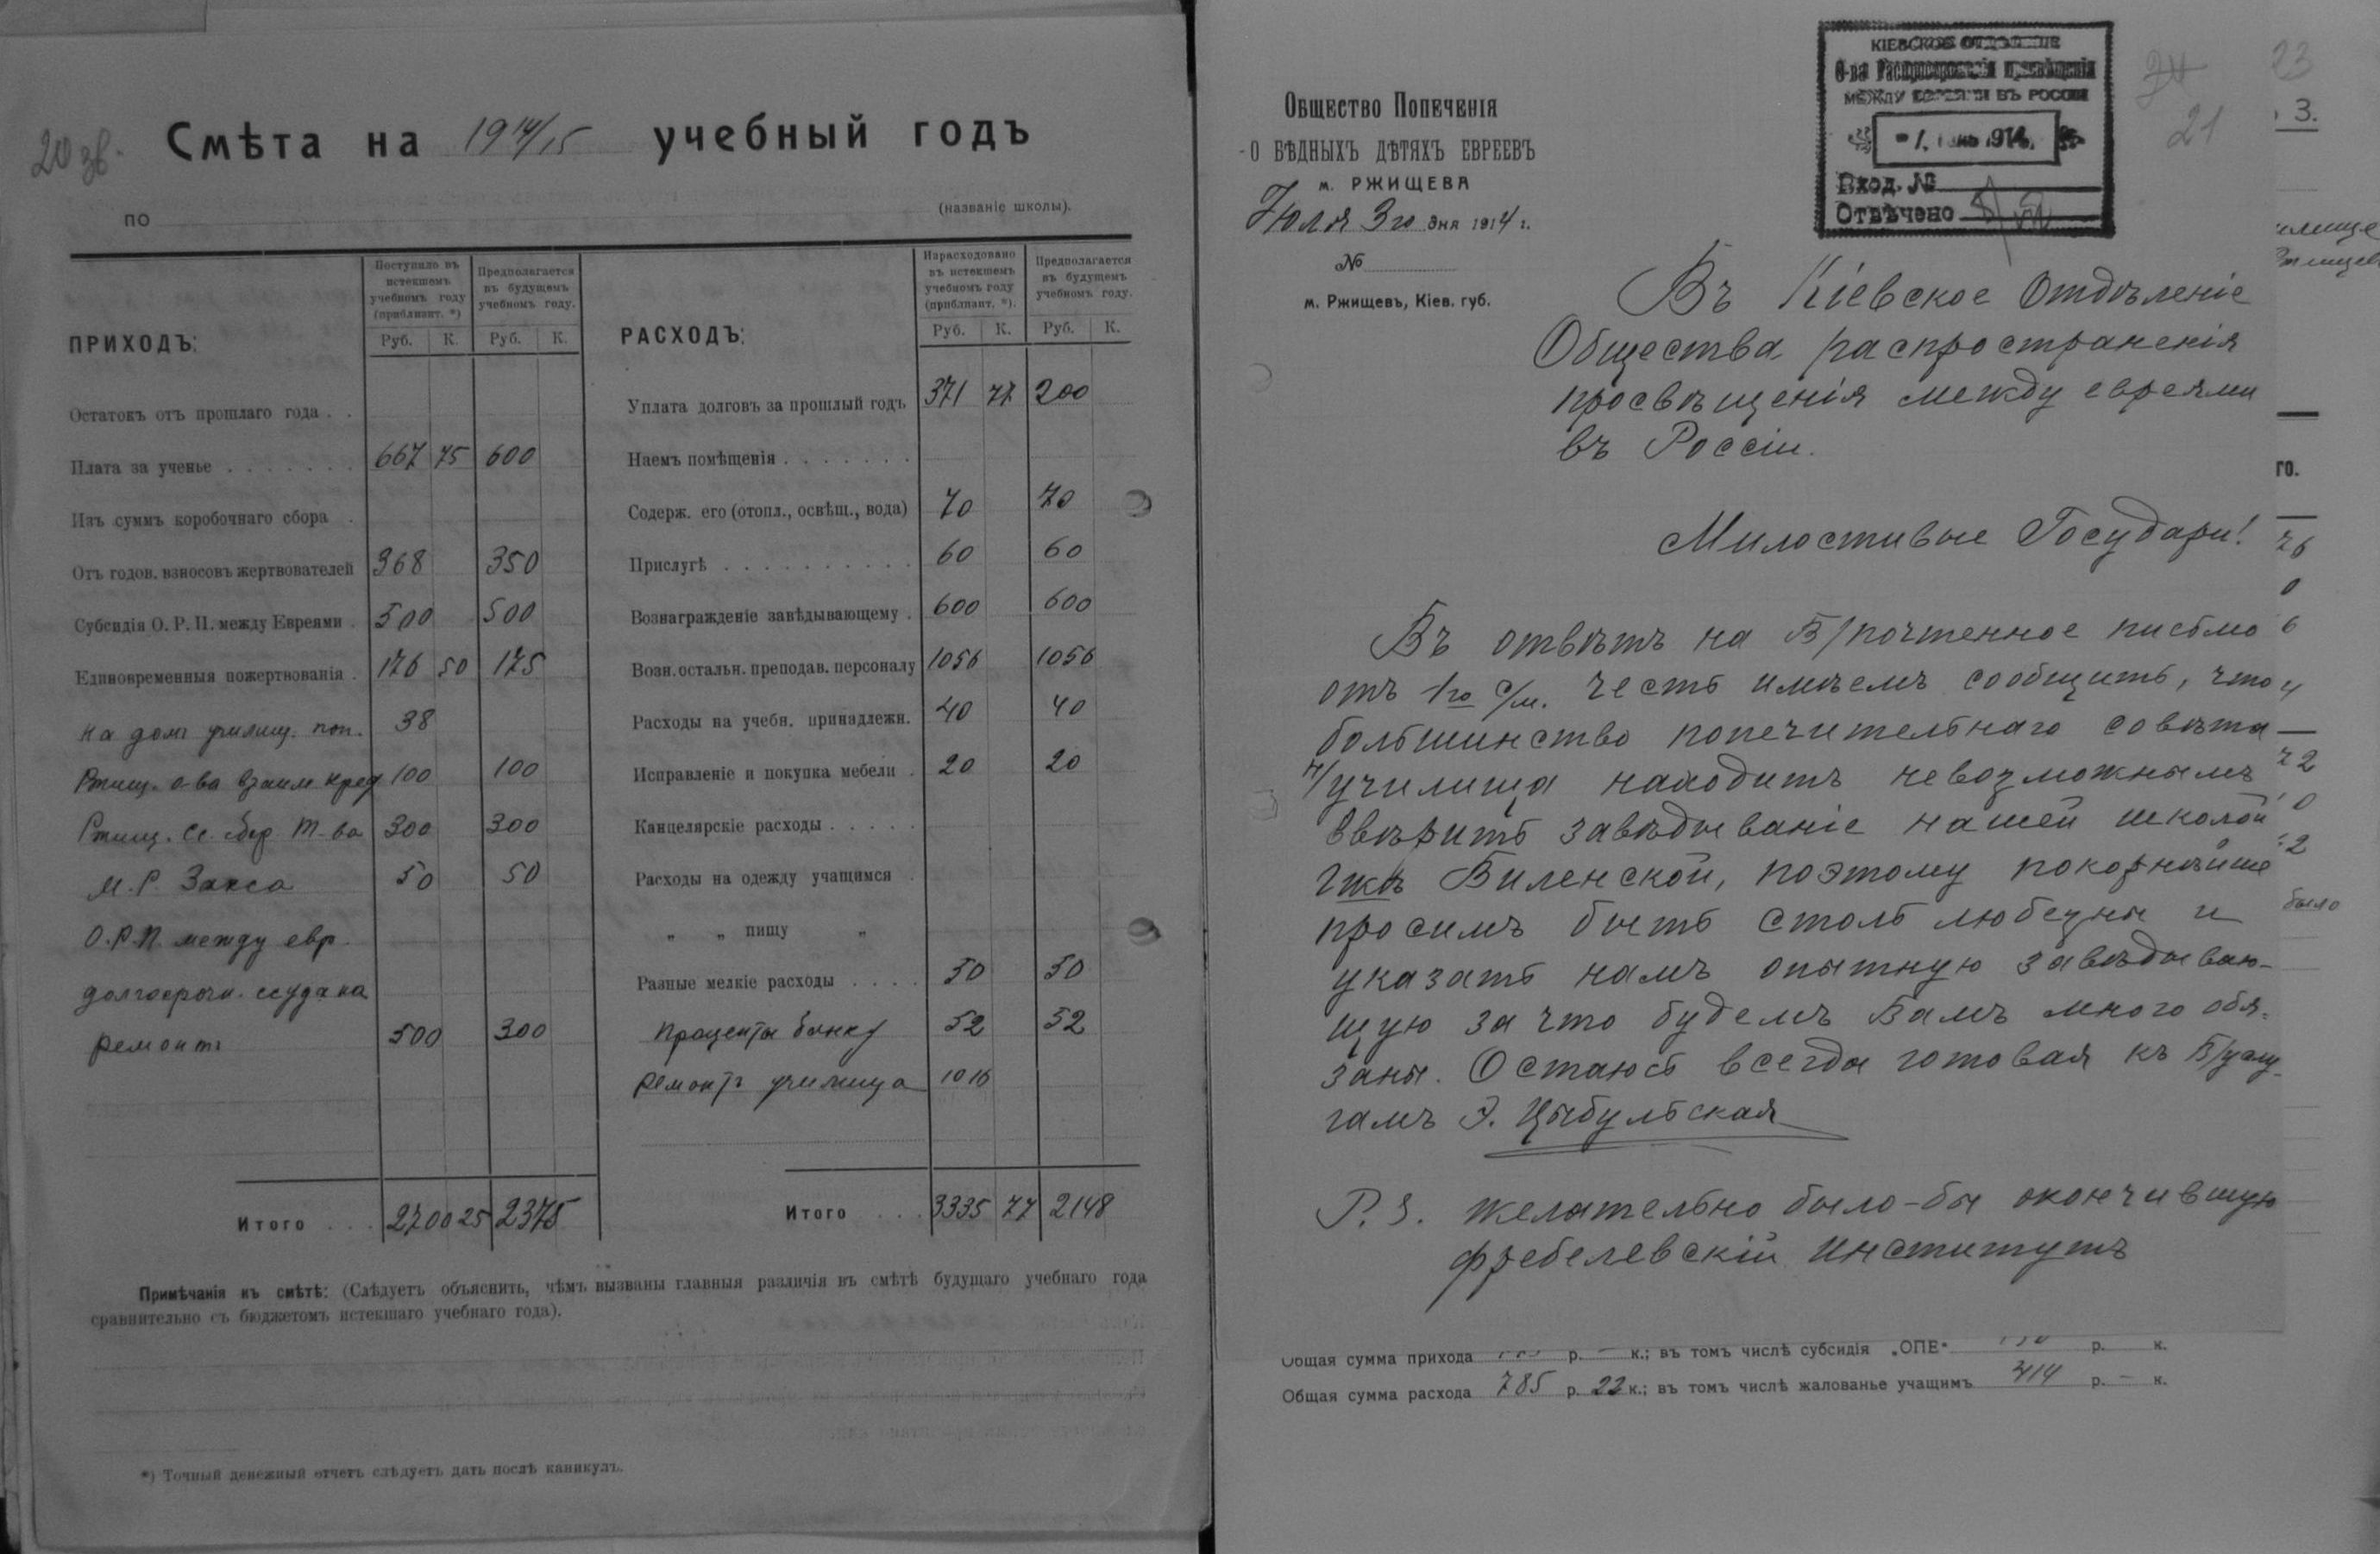 20 зв.
Смѣта на 1914/15 учебный годъ
по (названіе школы).
ПРИХОДЪ:
Поступило въ истекшемъ учебномъ году (приблизит. *)
Предполагается въ будущемъ учебномъ году.
Руб. К. Руб. К.
РАСХОДЪ:
Израсходовано въ истекшемъ учебномъ году (приблизит. *).
Предполагается въ будущемъ учебномъ году.
Руб. К. Руб. К.
Остатокъ отъ прошлаго года . .
Плата за ученье . . . . . . . 667 75 600
Изъ суммъ коробочнаго сбора .
Отъ годов. взносовъ жертвователей 368 350
Субсидія О. Р. П. между Евреями . 500 500
Единовременныя пожертвованія . 176 50 175
на домъ училищ. поп. 38
Ржищ. о-ва взаим кред 100 100
Ржищ. сс. сбер. Т-ва 300 300
М. Р. Закса 50 50
О.Р.П. между евр.
долгосрочн. ссуда на
ремонтъ 500 300
Итого . . . 2700 25 2375
Уплата долговъ за прошлый годъ 371 77 200
Наемъ помѣщенія . . . . . . .
Содерж. его (отопл., освѣщ., вода) 70 70
Прислугѣ . . . . . . . . . . 60 60
Вознагражденіе завѣдывающему . 600 600
Возн. остальн. преподав. персоналу 1056 1056
Расходы на учебн. принадлежн. 40 40
Исправленіе и покупка мебели . 20 20
Канцелярскіе расходы . . . . .
Расходы на одежду учащимся .
„ „ пищу „
Разные мелкіе расходы . . . . 50 50
Проценты банку 52 52
Ремонтъ училища 1016
Итого . . . 3335 77 2148
Примѣчанія къ смѣтѣ: (Слѣдуетъ объяснить, чѣмъ вызваны главныя различія въ смѣтѣ будущаго учебнаго года
сравнительно съ бюджетомъ истекшаго учебнаго года).
*) Точный денежный отчетъ слѣдуетъ дать послѣ каникулъ.
КІЕВСКОЕ ОТДѢЛЕНІЕ
О-ва Распространенія просвѣщенія
МЕЖДУ ЕВРЕЯМИ ВЪ РОССІИ
Вход. №
Отвѣчено
21
23
3.
Общество Попеченія
О БѢДНЫХЪ ДѢТЯХЪ ЕВРЕЕВЪ
м. РЖИЩЕВА
Юля 3го дня 1914 г.
№
м. Ржищевъ, Кіев. губ.
Въ Кіевское Отдѣленіе
Общества распространенія
просвѣщенія между евреями
въ Россіи.
Милостивые Государи!
Въ отвѣтъ на В/почтенное письмо
отъ 1го с/м. честь имѣемъ сообщить, что
большинство попечительнаго совѣта
н/училища находитъ невозможнымъ
ввѣрить завѣдываніе нашей школой
Гжѣ Виленской, поэтому покорнѣйше
просимъ быть столь любезны и
указать намъ опытную завѣдываю-
щую за что будемъ Вамъ много обя-
заны. Остаюсь всегда готовая къ В/услу-
гамъ Э. Цыбульская
P.S. желательно было-бы окончившую
фребелевскій Институтъ
го.
76
было
Общая сумма прихода р. — к.; въ томъ числѣ субсидія „ОПЕ" р. к.
Общая сумма расхода 785 р. 22 к.; въ томъ числѣ жалованье учащимъ 414 р. — к.